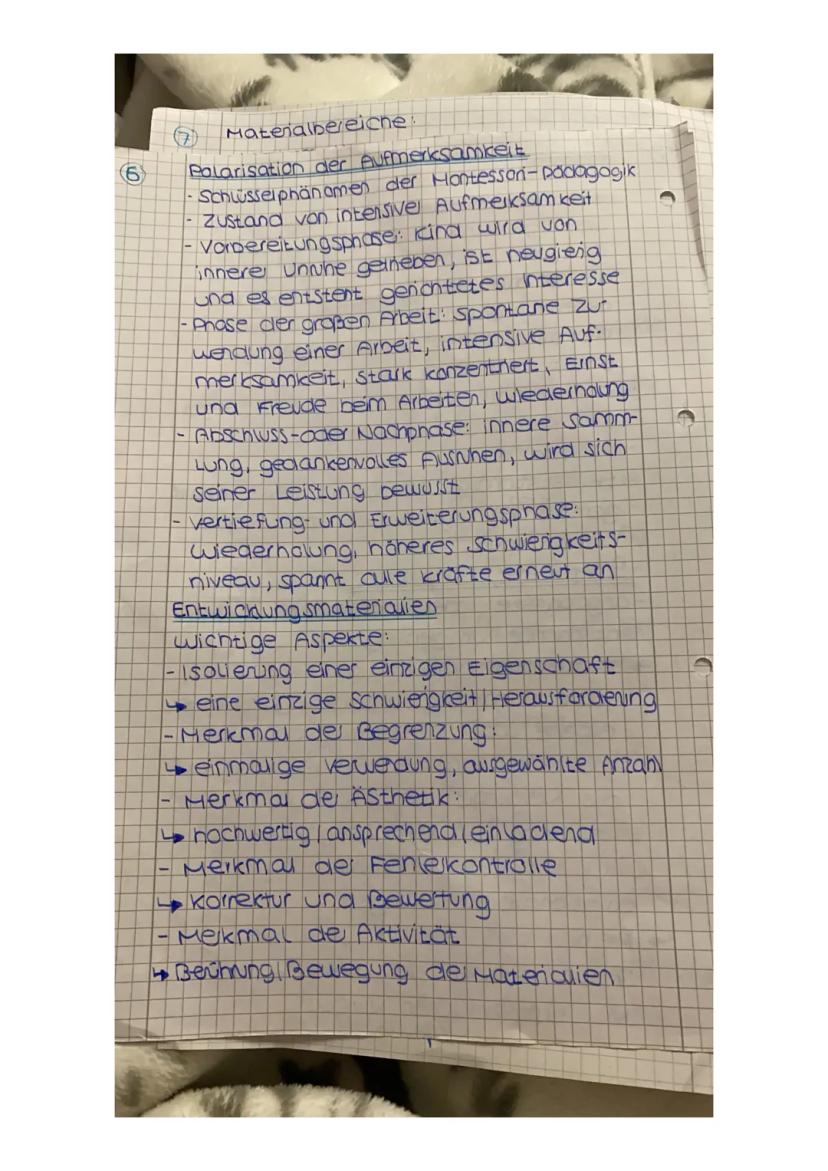 7 Materialbereiche:
6 Polarisation der Aufmerksamkeit
- Schlüsselphänomen der Montessori-Pädagogik
- Zustand von intensiver Aufmerksamkeit
- Vorbereitungsphase: Kind wird von
innerer Unruhe getrieben, ist neugierig
und es entsteht gerichtetes Interesse
- Phase der großen Arbeit: spontane Zu-
wendung einer Arbeit, intensive Auf-
merksamkeit, stark konzentriert, Ernst
und Freude beim Arbeiten, Wiederholung
- Abschluss- oder Nachphase: innere Samm-
lung, gedankenvolles Ausruhen, wird sich
seiner Leistung bewusst
- Vertiefung- und Erweiterungsphase:
Wiederholung, höheres Schwierigkeits-
niveau, spannt alle Kräfte erneut an
Entwicklungsmaterialien
Wichtige Aspekte:
- Isolierung einer einzigen Eigenschaft
↳ eine einzige Schwierigkeit/Herausforderung
- Merkmal der Begrenzung:
↳ einmalige Verwendung, ausgewählte Anzahl
- Merkmal der Ästhetik:
↳ hochwertig/ansprechend/einladend
- Merkmal der Fehlerkontrolle
↳ Korrektur und Bewertung
- Merkmal der Aktivität
↳ Berührung/Bewegung der Materialien